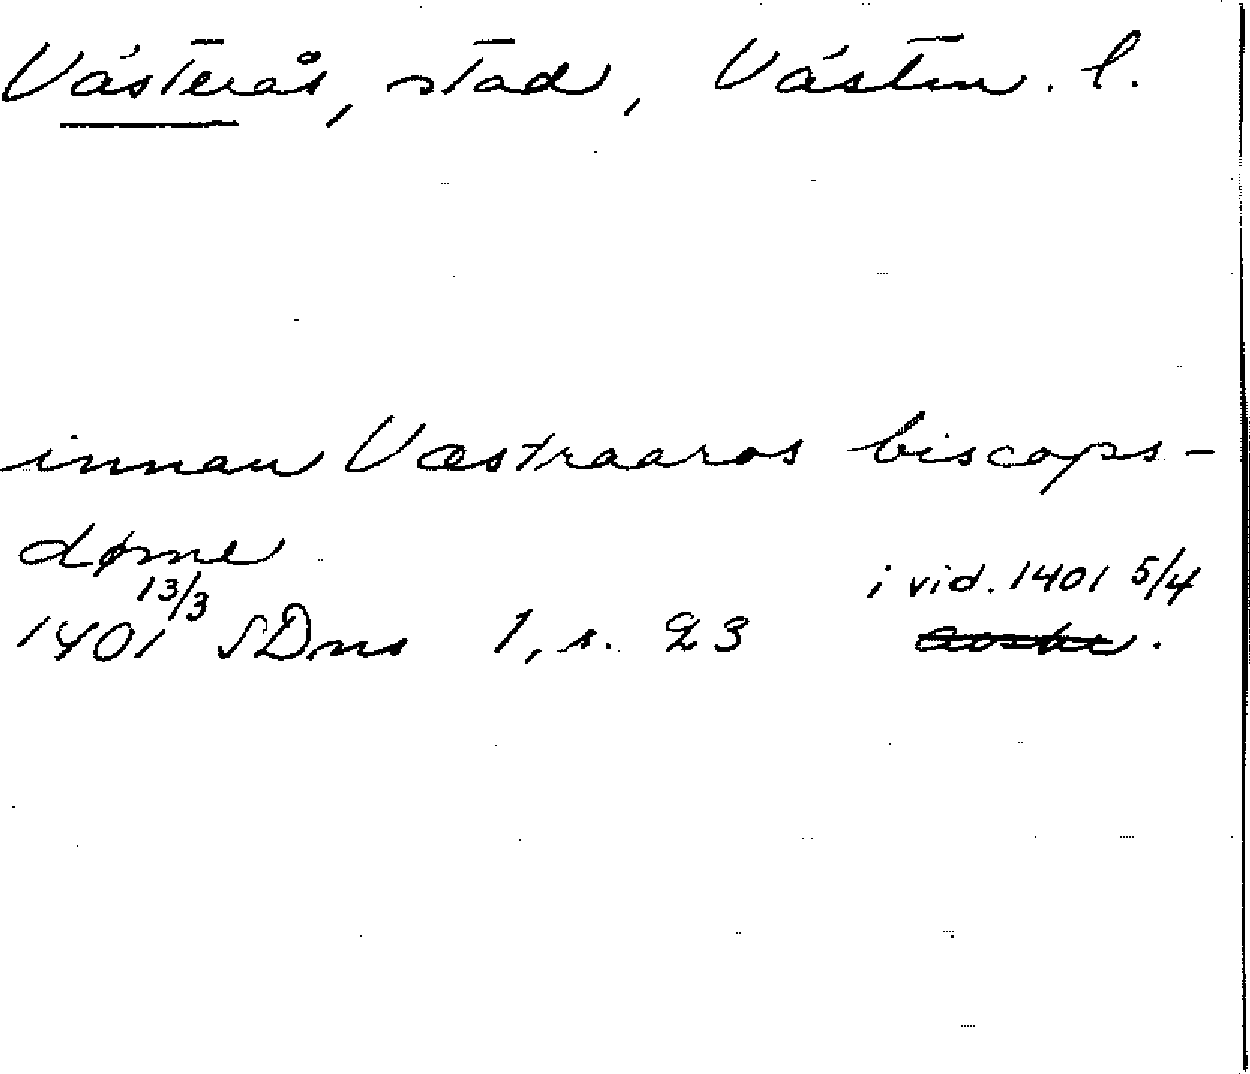 Västerås, stad, Västm. l.
innan Væstraaros biscops-
døme
13/3 i vid. 1401 5/4
1401 SDns 1, s. 23